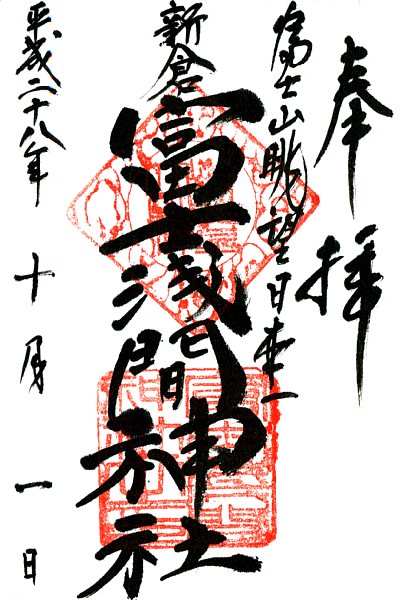 奉拝
富士山眺望日本一
新倉
富士浅間神社
平成二十八年十月一日